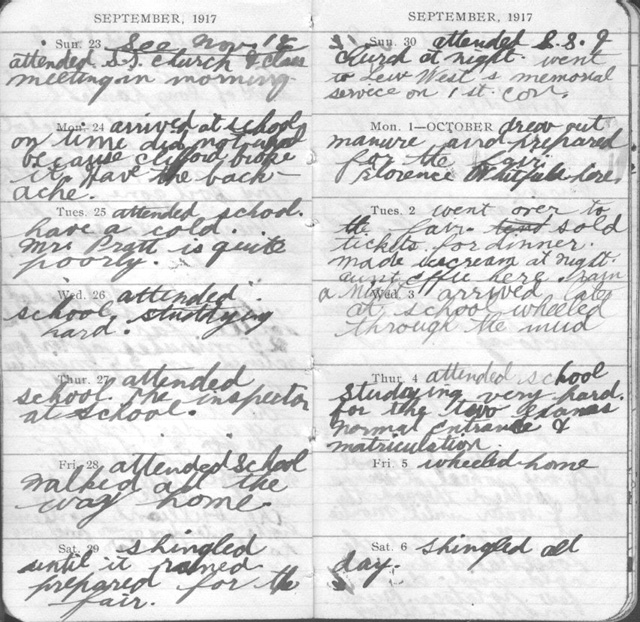 SEPTEMBER, 1917
Sun. 23 See Nov. 18
attended S.S. Church & Class
meeting in morning.
Mon. 24 arrived at school
on time did not
because Clifford broke
it have the back-
ache.
Tues. 25 attended school.
have a cold.
Mrs Pratt is quite
poorly.
Wed. 26 attended
school studdying
hard.
Thur. 27 attended
school. The inspector
at school.
Fri. 28 attended School
walked all the
way home.
Sat. 29 shingled
until it rained
prepared for the
fair.
SEPTEMBER, 1917
Sun. 30 attended S.S. &
Church at night. went
to Lew West's memorial
service on 1st. Con.
Mon. 1—OCTOBER drew out
manure and prepared
for the fair.
Florence Whitfield here.
Tues. 2 went over to
the fair. sold
tickets for dinner.
made icecream at night.
aunt Effie here.
Wed. 3 arrived late
at school wheeled
through the mud
Thur. 4 attended school
Studdying very hard.
for the two Exams
Normal Entrance &
matriculation.
Fri. 5 wheeled home
Sat. 6 Shingled all
day.